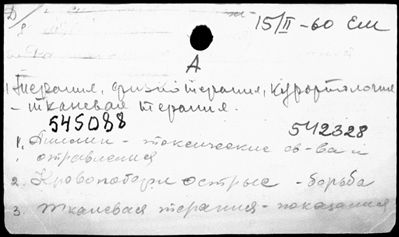 15/II - 60 ЕМ
А
1. Терапия, физиотерапия, курортология
- тканевая терапия.
545088 542328
1. токсические св-ва и
отравления
2. Кровопотери острые - борьба
3. Тканевая терапия - показания